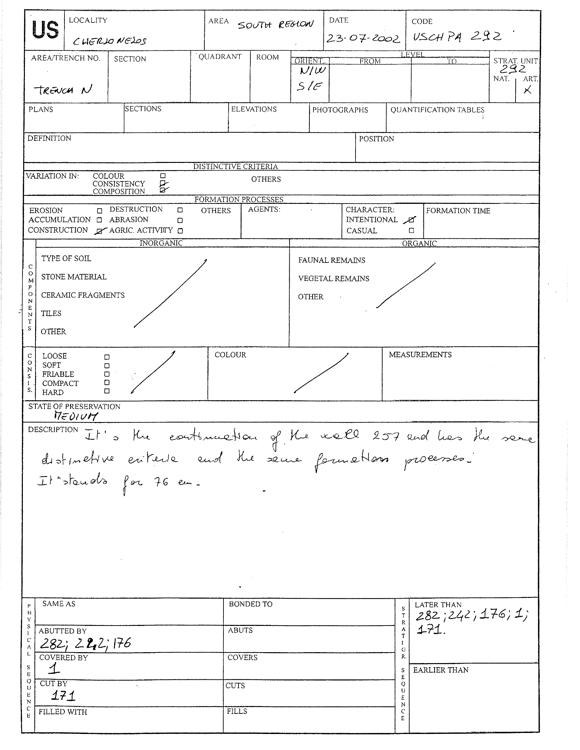 US
LOCALITY
CHERSONESOS
AREA SOUTH REGION
DATE
23-07-2002
CODE
USCH PA 292
AREA/TRENCH NO.
TRENCH N
SECTION
QUADRANT
ROOM
LEVEL
ORIENT.
FROM
TO
N/W
S/E
STRAT. UNIT
292
NAT.
ART.
X
PLANS
SECTIONS
ELEVATIONS
PHOTOGRAPHS
QUANTIFICATION TABLES
DEFINITION
POSITION
DISTINCTIVE CRITERIA
VARIATION IN:
COLOUR
CONSISTENCY
COMPOSITION
OTHERS
FORMATION PROCESSES
EROSION
DESTRUCTION
OTHERS
ACCUMULATION
ABRASION
CONSTRUCTION
AGRIC. ACTIVITY
AGENTS:
CHARACTER:
INTENTIONAL
CASUAL
FORMATION TIME
COMPONENTS
INORGANIC
TYPE OF SOIL
STONE MATERIAL
CERAMIC FRAGMENTS
TILES
OTHER
ORGANIC
FAUNAL REMAINS
VEGETAL REMAINS
OTHER
CONSIS.
LOOSE
SOFT
FRIABLE
COMPACT
HARD
COLOUR
MEASUREMENTS
STATE OF PRESERVATION
MEDIUM
DESCRIPTION It's the continuation of the wall 257 and has the same
distinctive criteria and the same formation processes.
It stands for 76 cm.
PHYSICAL SEQUENCE
SAME AS
BONDED TO
ABUTTED BY
282; 242; 176
ABUTS
COVERED BY
1
COVERS
CUT BY
171
CUTS
FILLED WITH
FILLS
STRATIGR. SEQUENCE
LATER THAN
282; 242; 176; 1;
171.
EARLIER THAN